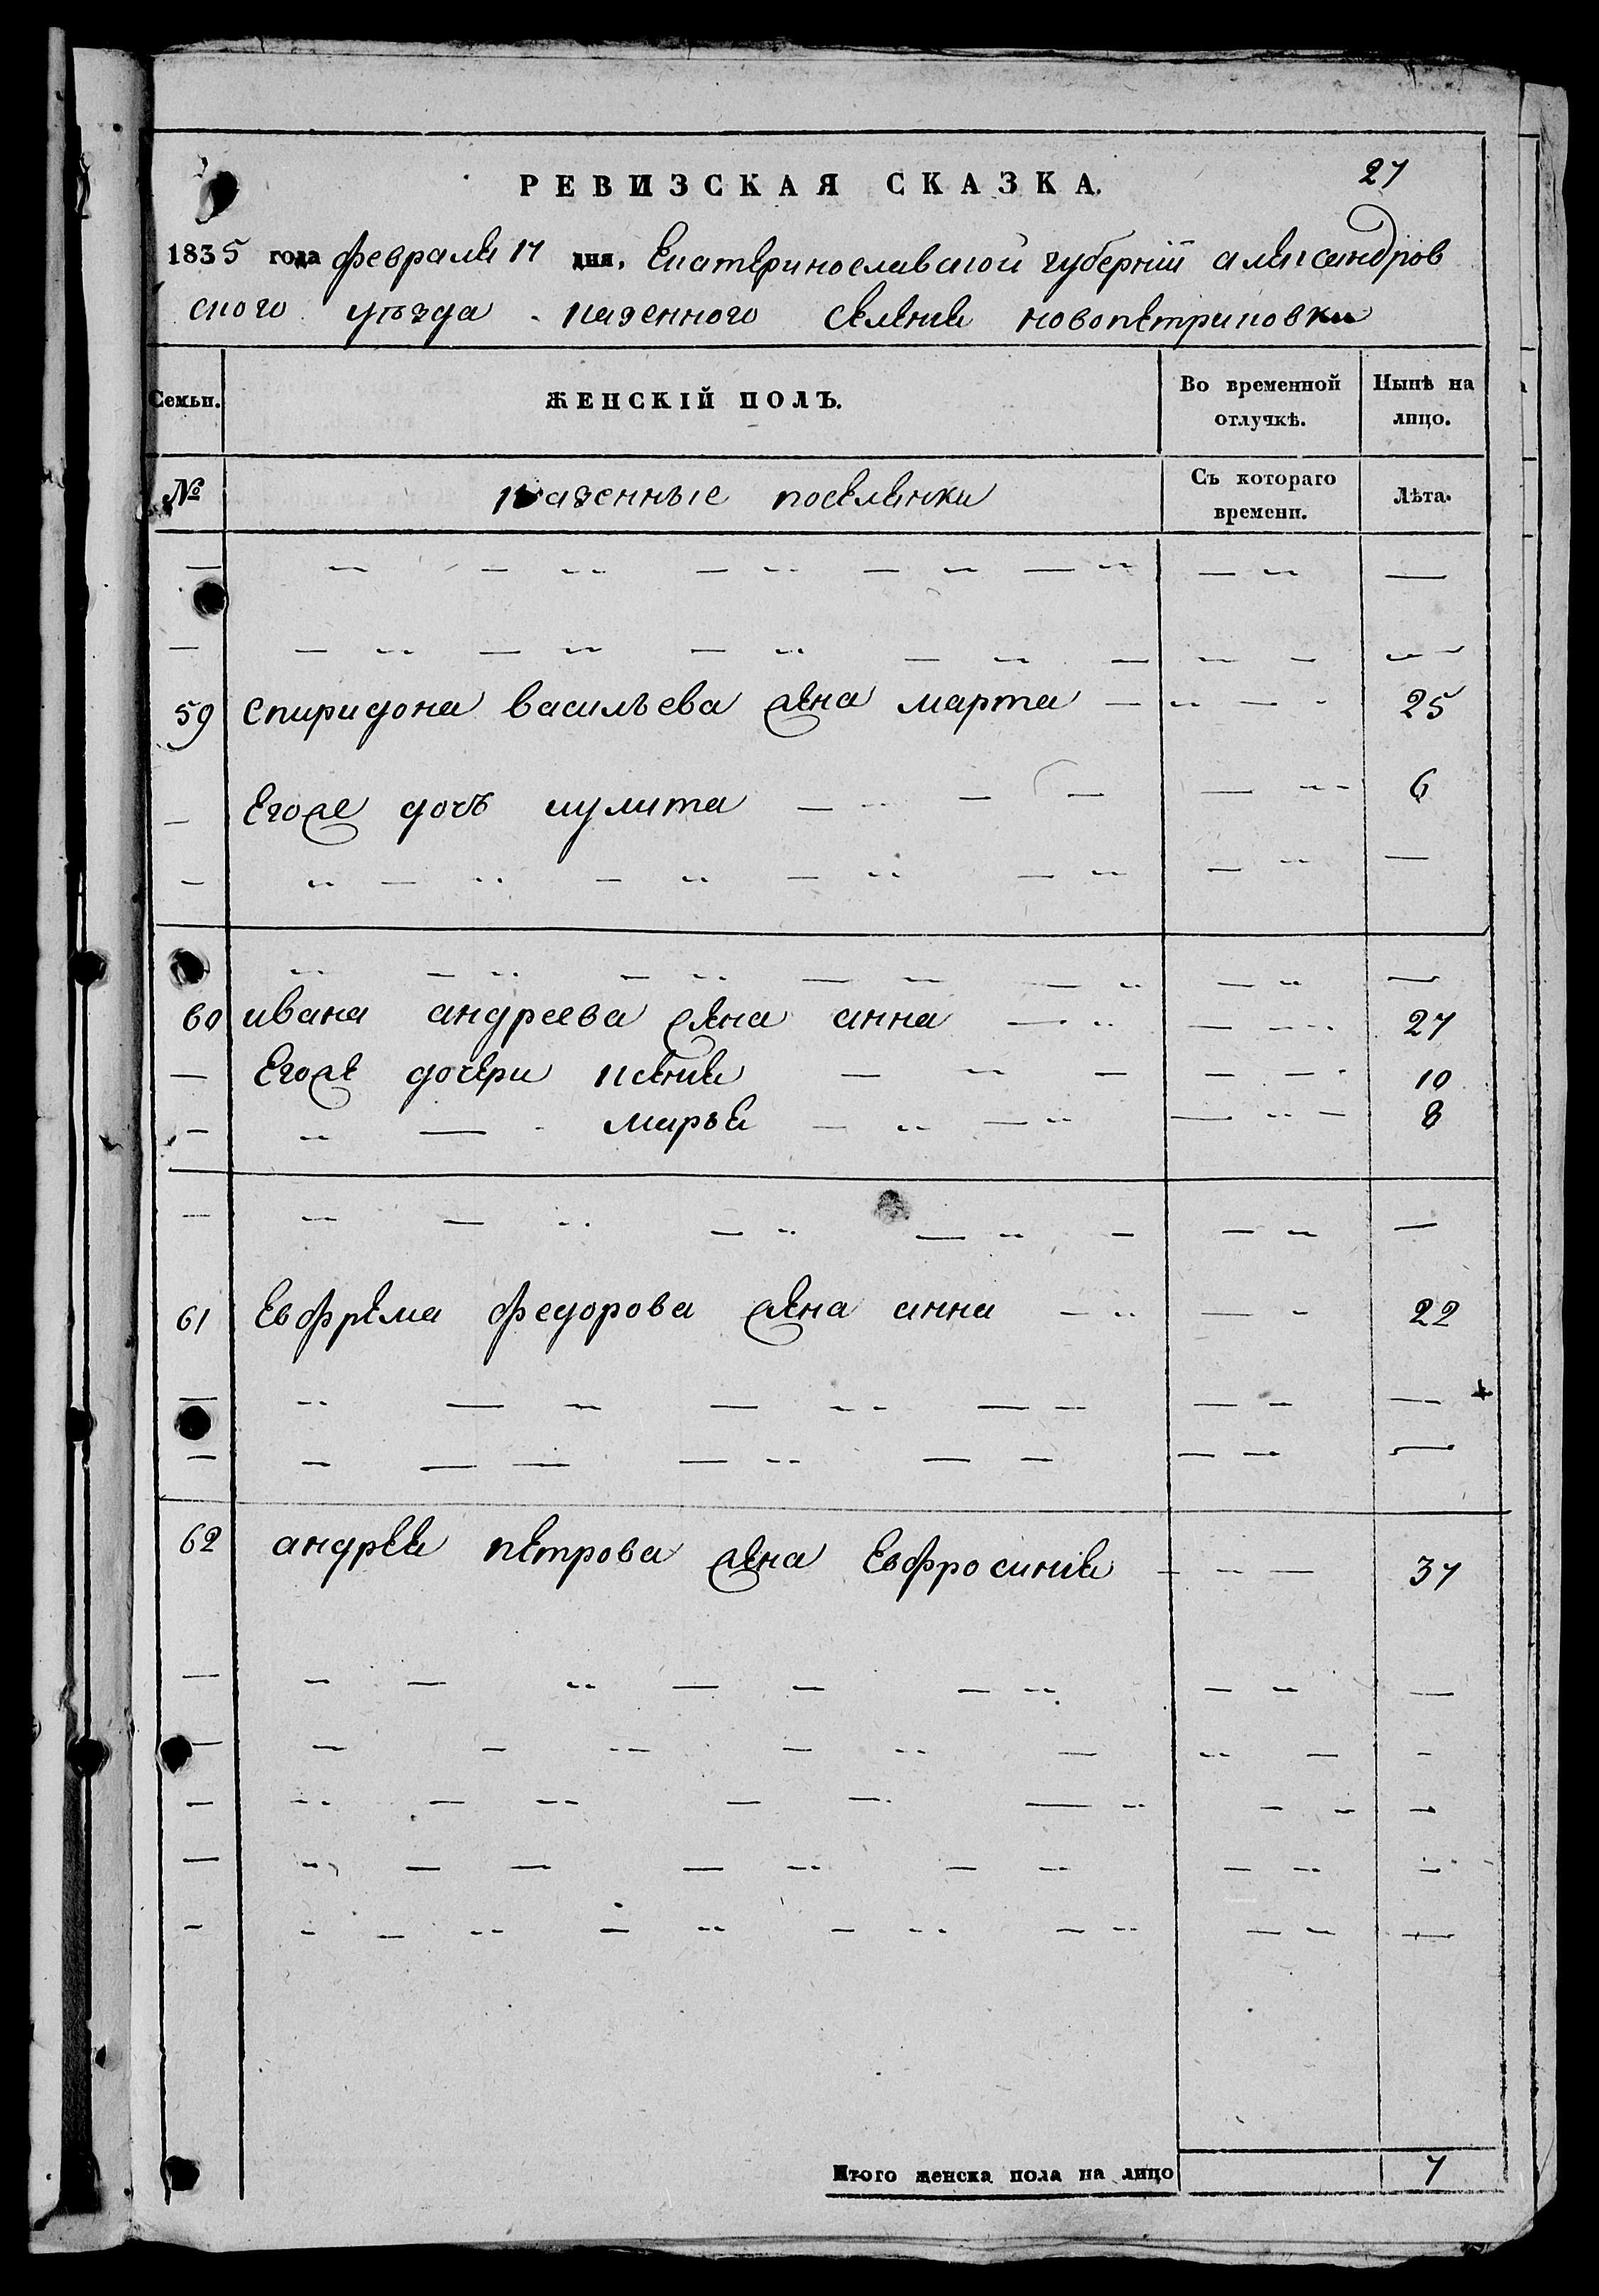 27
РЕВИЗСКАЯ СКАЗКА.
1835 года февраля 17 дня. Екатеринославской губернии александров
ского уѣзда казенного селения новопетриковки
Семьи. ЖЕНСКІЙ ПОЛЪ. Во временной отлучкѣ. Нынѣ на лицо.
№ казенные поселянки Съ котораго времени. Лѣта.
59 спиридона васильева жена марта 25
Егоже дочь иулита 6
60 ивана андреева жена анна 27
Егоже дочери ксения 10
марья 8
61 Евфрема федорова жена анна 22
62 андрея петрова жена Евфросиния 37
Итого женска пола на лицо 7